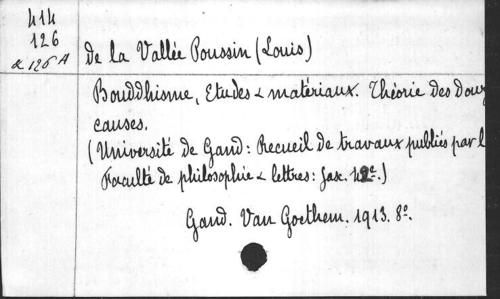 414
126
& 126 A
de la Vallée Poussin (Louis)
Bouddhisme, Etudes & matériaux. Théorie des Douz
causes.
(Université de Gand: Recueil de travaux publiés par l
Faculté de philosophie & lettres: fasc. 42e.)
Gand. Van Goethem. 1913. 8o.